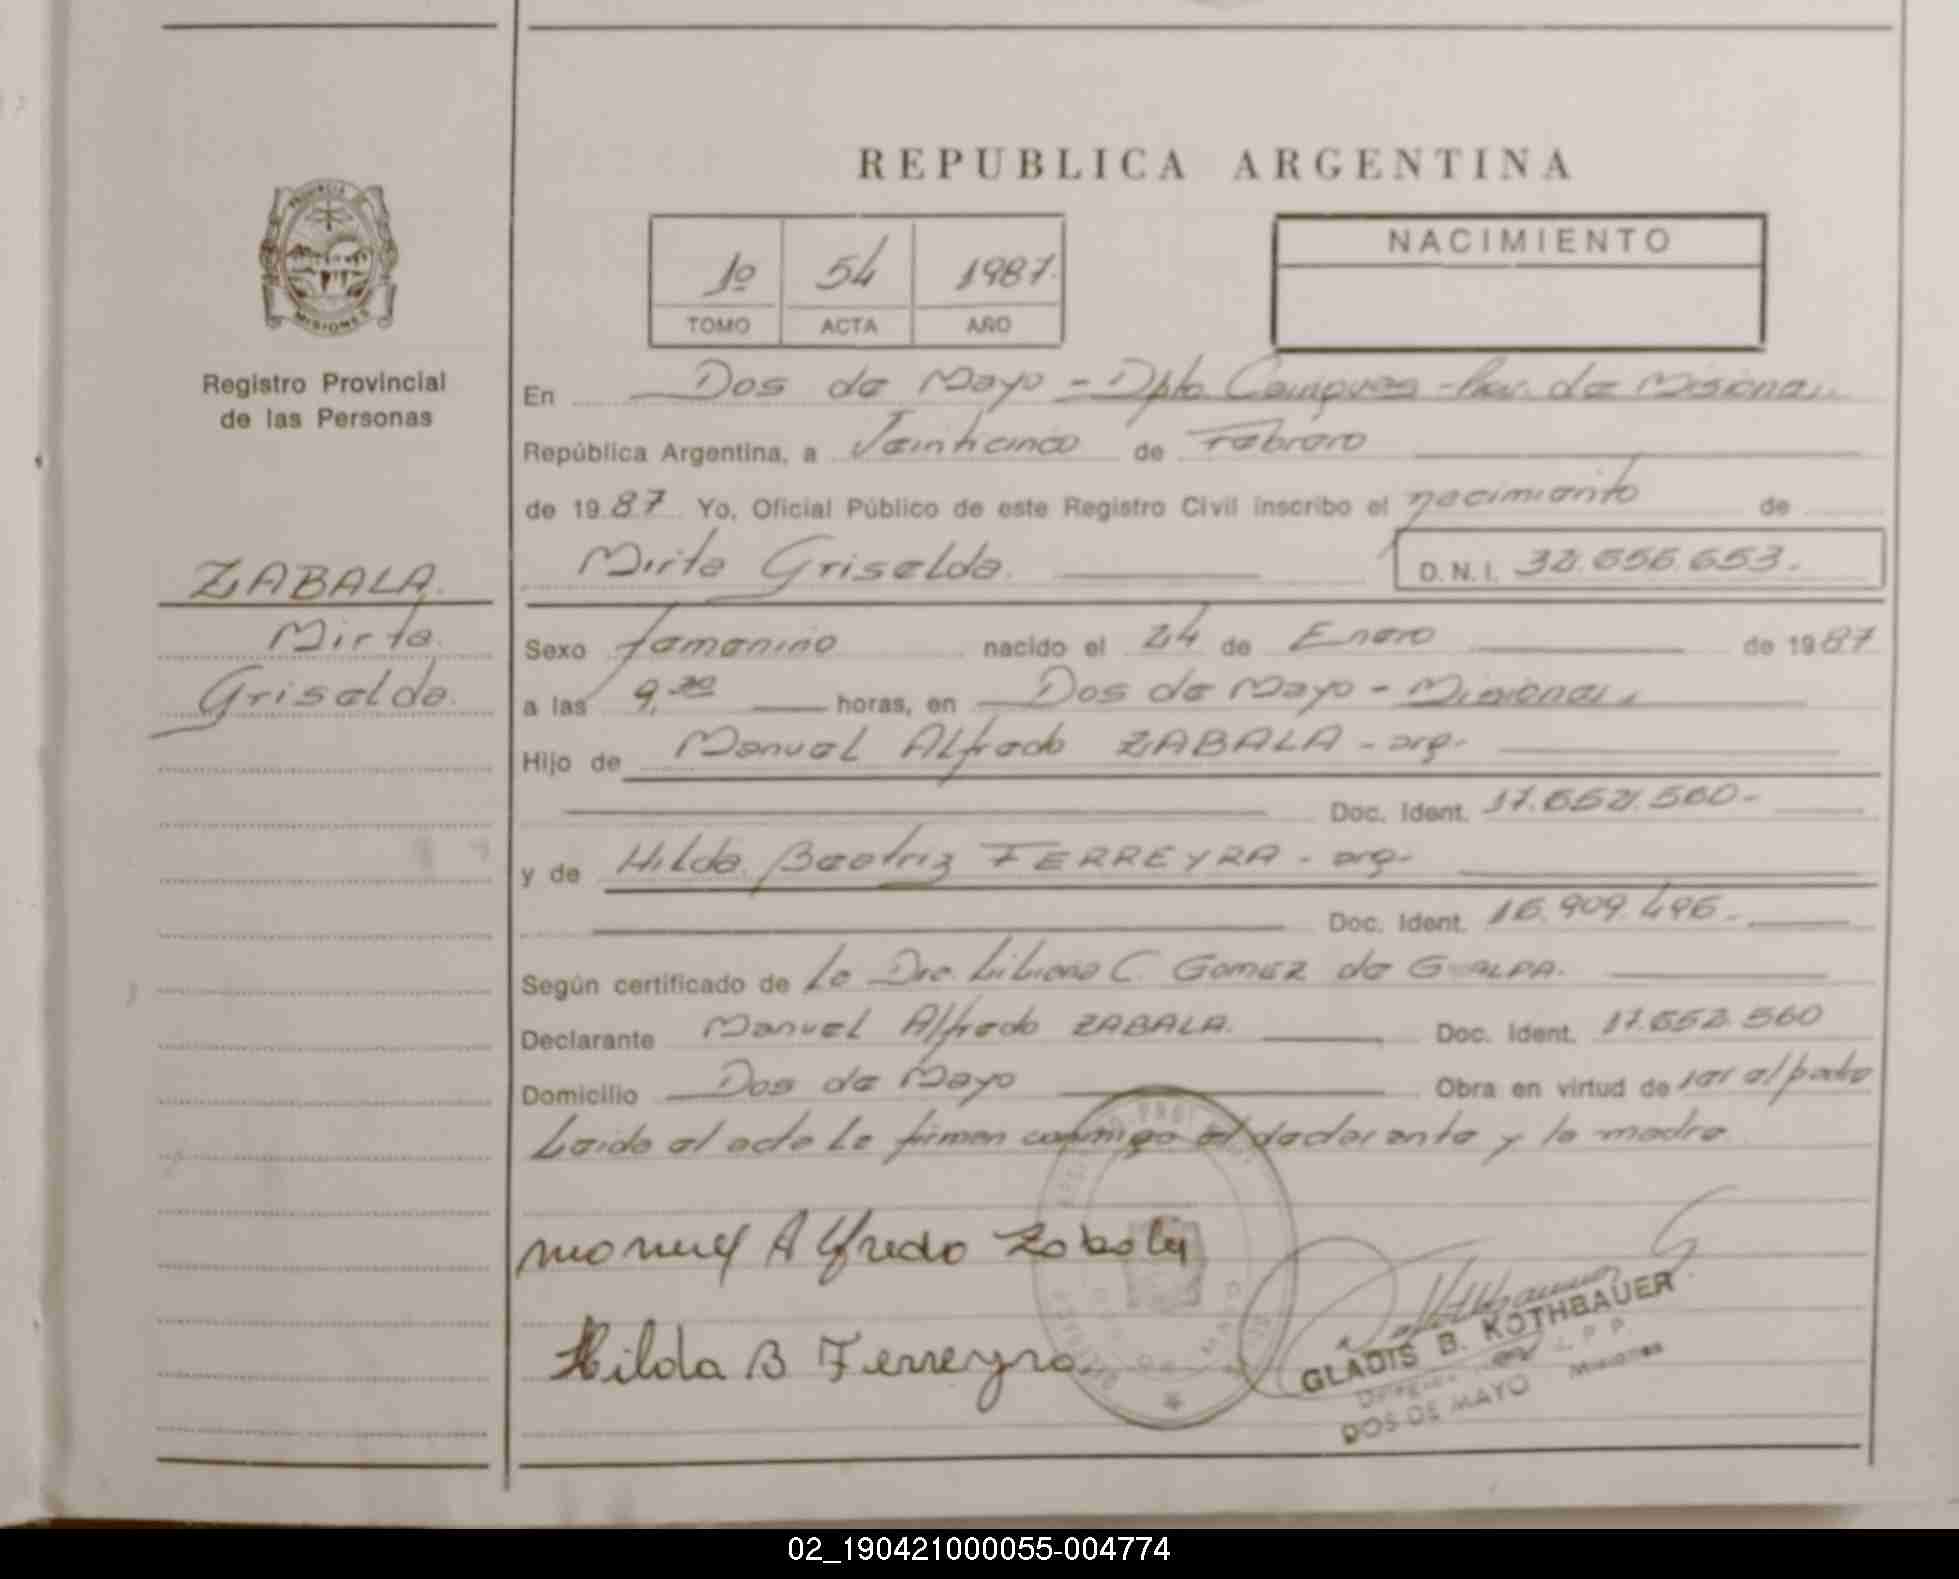 REPUBLICA ARGENTINA
PROVINCIA DE
MISIONES
Registro Provincial
de las Personas
1º 54 1987.
TOMO ACTA AÑO
NACIMIENTO
En Dos de Mayo - Dpto Cainguas - Prov. de Misiones.
República Argentina, a Veinticinco de Febrero
de 1987 Yo, Oficial Público de este Registro Civil inscribo el nacimiento de
Mirta Griselda. D.N.I. 32.656.653.
ZABALA.
Mirta
Griselda.
Sexo femenino nacido el 24 de Enero de 1987
a las 9,30 horas, en Dos de Mayo - Misiones.
Hijo de Manuel Alfredo ZABALA - arg.
Doc. Ident. 17.652.560-
y de Hilda Beatriz FERREYRA - arg.
Doc. Ident. 16.909.496-
Según certificado de la Dra. Liliana C. Gomez de
Declarante Manuel Alfredo ZABALA. Doc. Ident. 17.652.560
Domicilio Dos de Mayo Obra en virtud de ser el padre
Leida el acta la firman conmigo el declarante y la madre
Manuel Alfredo Zabala
Hilda B Ferreyra.
GLADIS B. KOTHBAUER
DOS DE MAYO Misiones
02_190421000055-004774